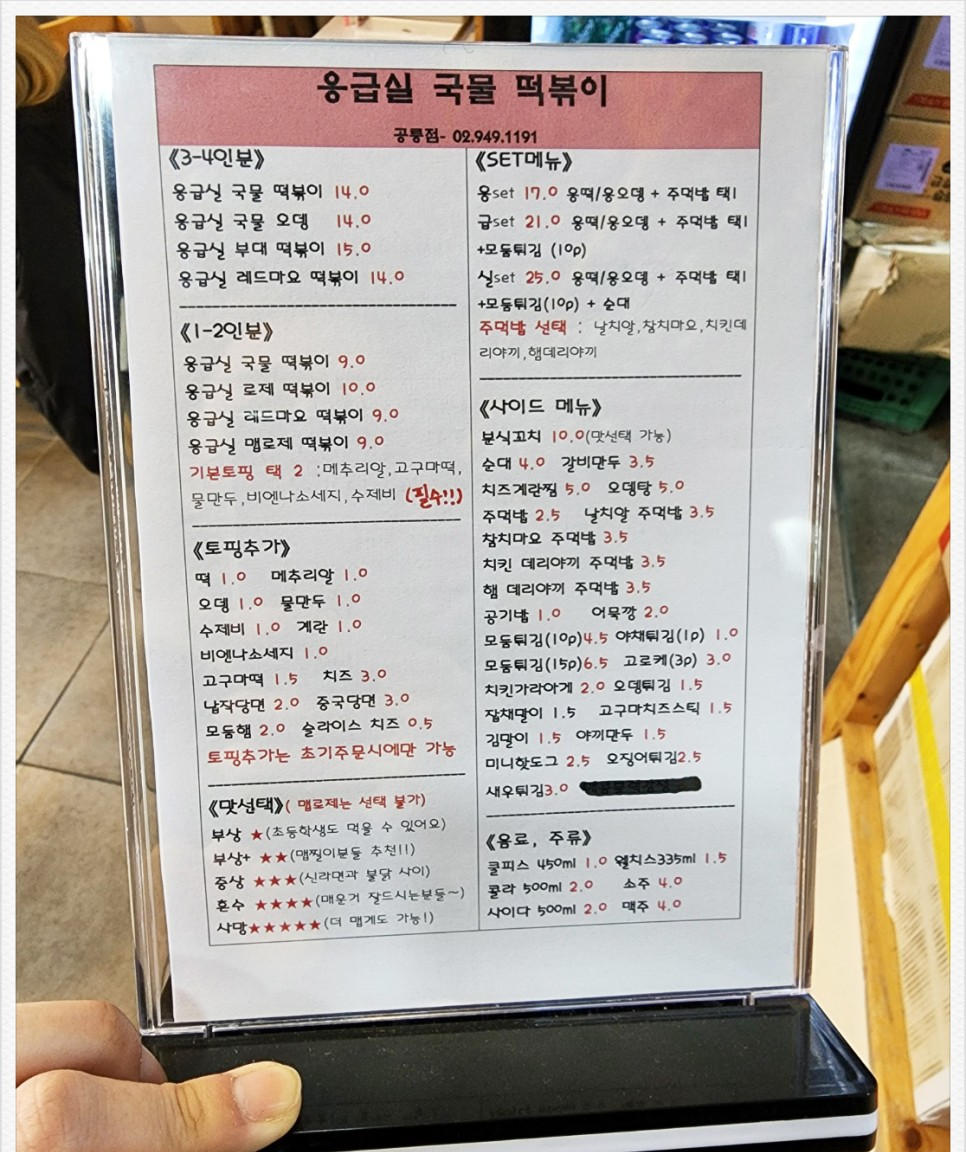 응급실 국물 떡볶이
공릉점- 02.949.1191
《3-4인분》
응급실 국물 떡볶이 14.0
응급실 국물 오뎅 14.0
응급실 부대 떡볶이 15.0
응급실 레드마요 떡볶이 14.0
《1-2인분》
응급실 국물 떡볶이 9.0
응급실 로제 떡볶이 10.0
응급실 레드마요 떡볶이 9.0
응급실 맵로제 떡볶이 9.0
기본토핑 택 2 :메추리알,고구마떡,
물만두,비엔나소세지,수제비 (필수!!)
《토핑추가》
떡 1.0 메추리알 1.0
오뎅 1.0 물만두 1.0
수제비 1.0 계란 1.0
비엔나소세지 1.0
고구마떡 1.5 치즈 3.0
납작당면 2.0 중국당면 3.0
모둠햄 2.0 슬라이스 치즈 0.5
토핑추가는 초기주문시에만 가능
《맛선택》( 맵로제는 선택 불가)
부상 ★(초등학생도 먹을 수 있어요)
부상+ ★★(맵찔이분들 추천!!)
중상 ★★★(신라면과 불닭 사이)
혼수 ★★★★(매운거 잘드시는분들~)
사망★★★★★(더 맵게도 가능!)
《SET메뉴》
응set 17.0 응떡/응오뎅 + 주먹밥 택1
급set 21.0 응떡/응오뎅 + 주먹밥 택1
+모둠튀김 (10p)
실set 25.0 응떡/응오뎅 + 주먹밥 택1
+모둠튀김(10p) + 순대
주먹밥 선택 : 날치알,참치마요,치킨데
리야끼,햄데리야끼
《사이드 메뉴》
분식꼬치 10.0(맛선택 가능)
순대 4.0 갈비만두 3.5
치즈계란찜 5.0 오뎅탕 5.0
주먹밥 2.5 날치알 주먹밥 3.5
참치마요 주먹밥 3.5
치킨 데리야끼 주먹밥 3.5
햄 데리야끼 주먹밥 3.5
공기밥 1.0 어묵깡 2.0
모둠튀김(10p)4.5 야채튀김(1p) 1.0
모둠튀김(15p)6.5 고로케(3p) 3.0
치킨가라아게 2.0 오뎅튀김 1.5
잡채말이 1.5 고구마치즈스틱 1.5
김말이 1.5 야끼만두 1.5
미니핫도그 2.5 오징어튀김2.5
새우튀김3.0
《음료, 주류》
쿨피스 450ml 1.0 웰치스335ml 1.5
콜라 500ml 2.0 소주 4.0
사이다 500ml 2.0 맥주 4.0